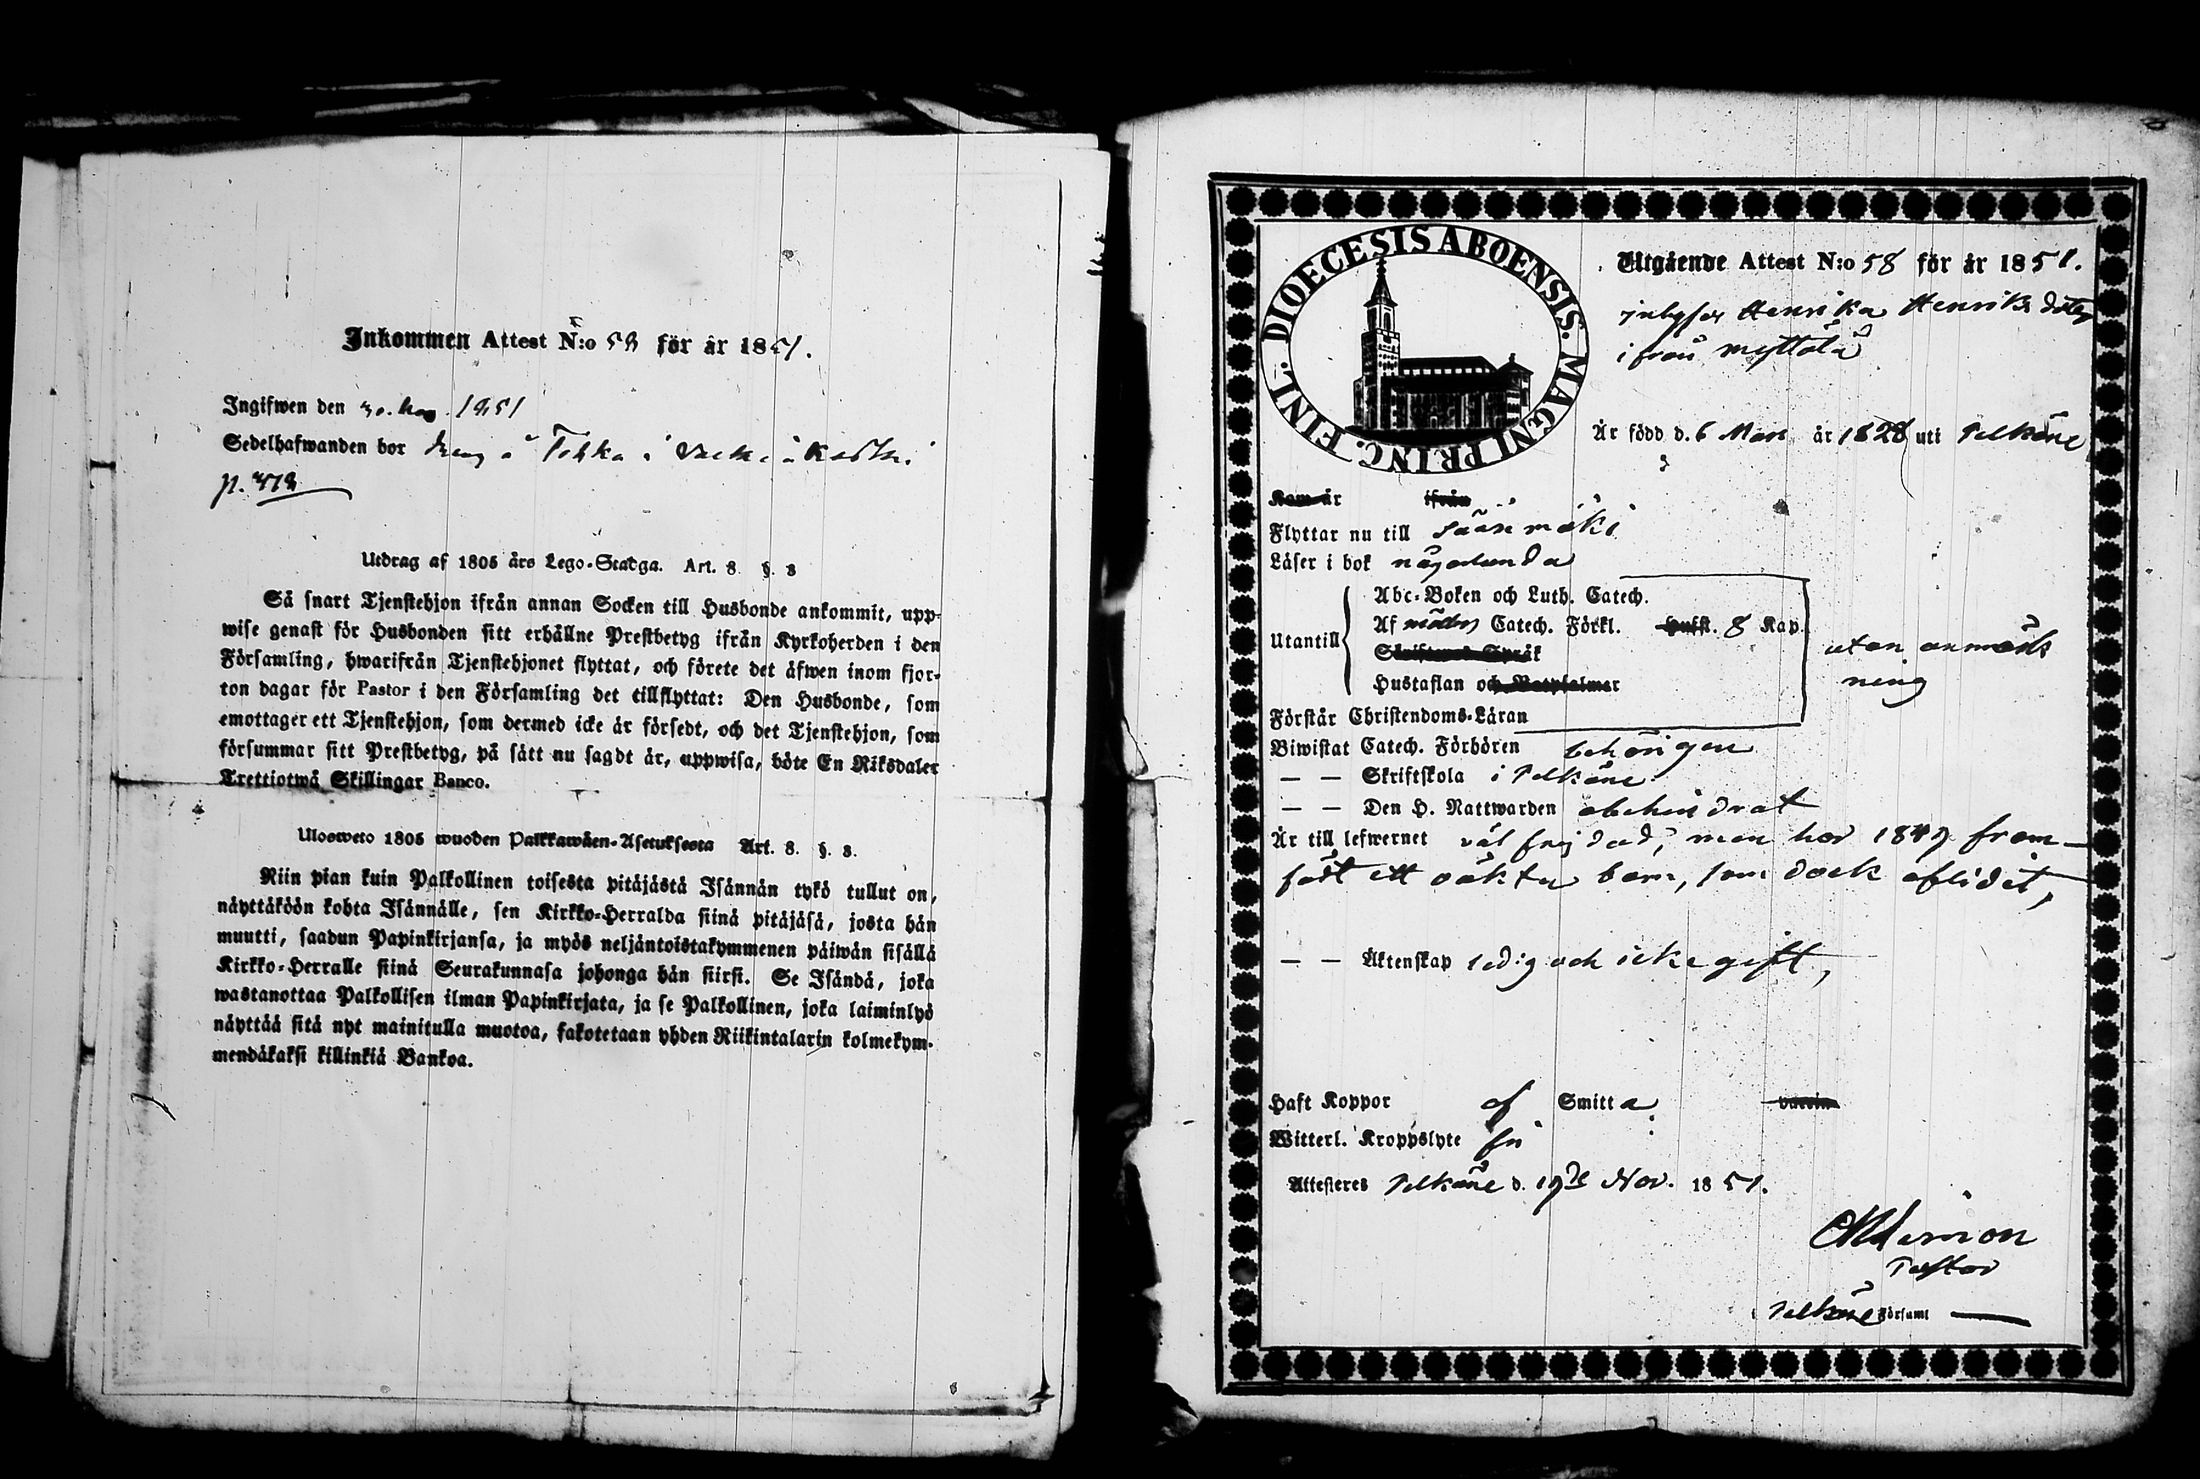 Inkommen Attest N:o 53 för år 1851.
Ingifwen den 30. 1851
Sedelhafwanden bor
p.
Utdrag af 1805 års Lego-Stadga. Art. 8. §. 3
Så snart Tjenstehjon ifrån annan Socken till Husbonde ankommit, upp-
wise genast för Husbonden sitt erhållne Prestbetyg ifrån Kyrkoherden i den
Församling, hwarifrån Tjenstehjonet flyttat, och förete det äfwen inom fjor-
ton dagar för Pastor i den Församling det tillflyttat: Den Husbonde, som
emottager ett Tjenstehjon, som dermed icke är försedt, och det Tjenstehjon, som
försummar sitt Prestbetyg, på sätt nu sagdt är, uppwisa, böte En Riksdaler
Trettiotwå Skillingar Banco.
Ulosweto 1805 wuoden Palkkawäen-Asetuksesta Art. 8. §. 3.
Niin pian kuin Palkollinen toisesta pitäjästä Isännän tykö tullut on,
näyttäköön kohta Isännälle, sen Kirkko-Herralda siinä pitäjäsä, josta hän
muutti, saadun Papinkirjansa, ja myös neljäntoistakymmenen päiwän sisällä
Kirkko-Herralle siinä Seurakunnasa johonga hän siirsi. Se Isändä, joka
wastanottaa Palkollisen ilman Papinkirjata, ja se Palkollinen, joka laiminlyö
näyttää sitä nyt mainitulla muotoa, sakotetaan yhden Riikintalarin kolmekym-
mendäkaksi killinkiä Bankoa.
DIOECESIS ABOENSIS. MAGNI PRINC. FINL.
Utgående Attest N:o 58 för år 1851.
Henrika Henriks dotter
ifrån Myttälä
Är född d. 6 Mars år 1828 uti Pelkäne
Kom år ifrån
Flyttar nu till Sääksmäki
Läser i bok någorlunda
Utantill
Abc-Boken och Luth. Catech.
Af Catech. Förkl. Hufst. 8 Kap.
Skriftenes Språk
Hustaflan och Botpsalmer
utan anmärk
ning
Förstår Christendoms-Läran
Biwistat Catech. Förhören behörigen
— — Skriftskola i Pelkäne
— — Den H. Nattwarden obehindrat
Är till lefwernet väl frejdad, men har 1849 fram-
födt ett oäkta barn, som dock aflidit,
— — Äktenskap ledig och icke gift,
Haft Koppor af Smitta
Witterl. Kroppslyte fri
Attesteras Pelkäne d. 19de Nov. 1851.
Pastor
i Pelkäne Församl